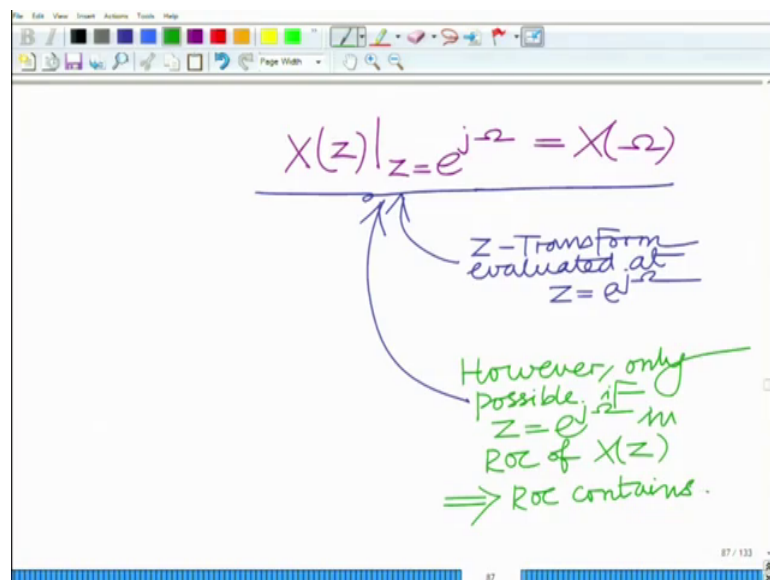 File Edit View Insert Actions Tools Help
B I
Page Width
X(z)|z=e^jΩ = X(Ω)
z-Transform
evaluated at
z = e^jΩ
However, only
possible if
z = e^jΩ in
ROC of X(z)
⇒ ROC contains.
87 / 133
87